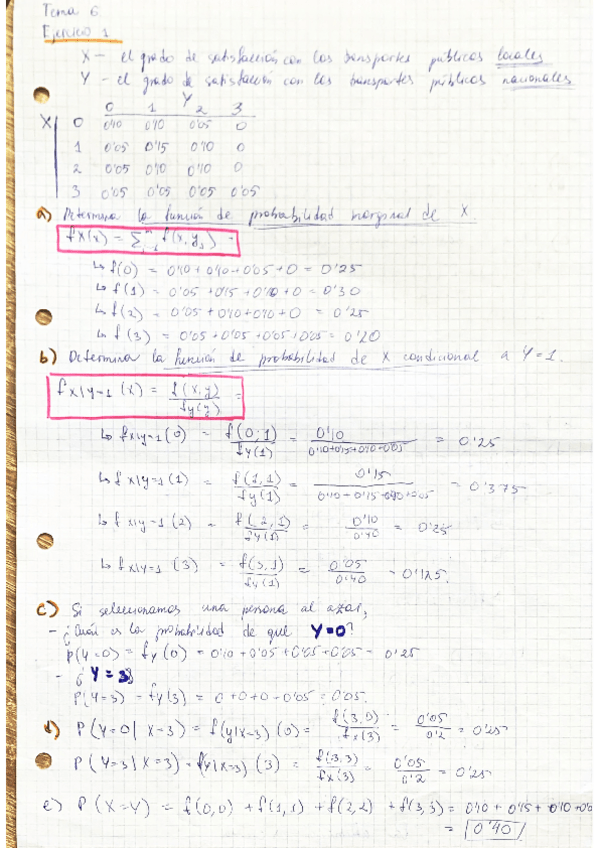 Tema 6
Ejercicio 1
X - el grado de satisfacción con los transportes públicos locales
Y - el grado de satisfacción con los transportes públicos nacionales
Y
0 1 2 3
X 0 0'10 0'10 0'05 0
1 0'05 0'15 0'10 0
2 0'05 0'10 0'10 0
3 0'05 0'05 0'05 0'05
a) Determina la función de probabilidad marginal de X.
fX(x) = Σ f(x, y) =
↳ f(0) = 0'10 + 0'10 + 0'05 + 0 = 0'25
↳ f(1) = 0'05 + 0'15 + 0'10 + 0 = 0'30
↳ f(2) = 0'05 + 0'10 + 0'10 + 0 = 0'25
↳ f(3) = 0'05 + 0'05 + 0'05 + 0'05 = 0'20
b) Determina la función de probabilidad de X condicional a Y=1.
fX|Y=1 (x) = f(x,y) / fy(y) =
↳ fX|Y=1 (0) = f(0;1) / fY(1) = 0'10 / 0'10+0'15+0'10+0'05 = 0'25
↳ fX|Y=1 (1) = f(1,1) / fy(1) = 0'15 / 0'10+0'15+0'10+0'05 = 0'375
↳ fX|Y=1 (2) = f(2,1) / fY(1) = 0'10 / 0'40 = 0'25
↳ fX|Y=1 (3) = f(3,1) / fy(1) = 0'05 / 0'40 = 0'125.
c) Si seleccionamos una persona al azar,
- ¿Cuál es la probabilidad de que Y=0?
P(Y=0) = fY(0) = 0'10 + 0'05 + 0'05 + 0'05 = 0'25
- ¿Y=3?
P(Y=3) = fY(3) = 0+0+0+0'05 = 0'05.
d) P(Y=0 | X=3) = f(y|x=3) (0) = f(3,0) / fx(3) = 0'05 / 0'2 = 0'25
P(Y=3 | X=3) = fY|X=3) (3) = f(3,3) / fx(3) = 0'05 / 0'2 = 0'25
e) P(X=Y) = f(0,0) + f(1,1) + f(2,2) + f(3,3) = 0'10 + 0'15 + 0'10 + 0'0
= 0'40